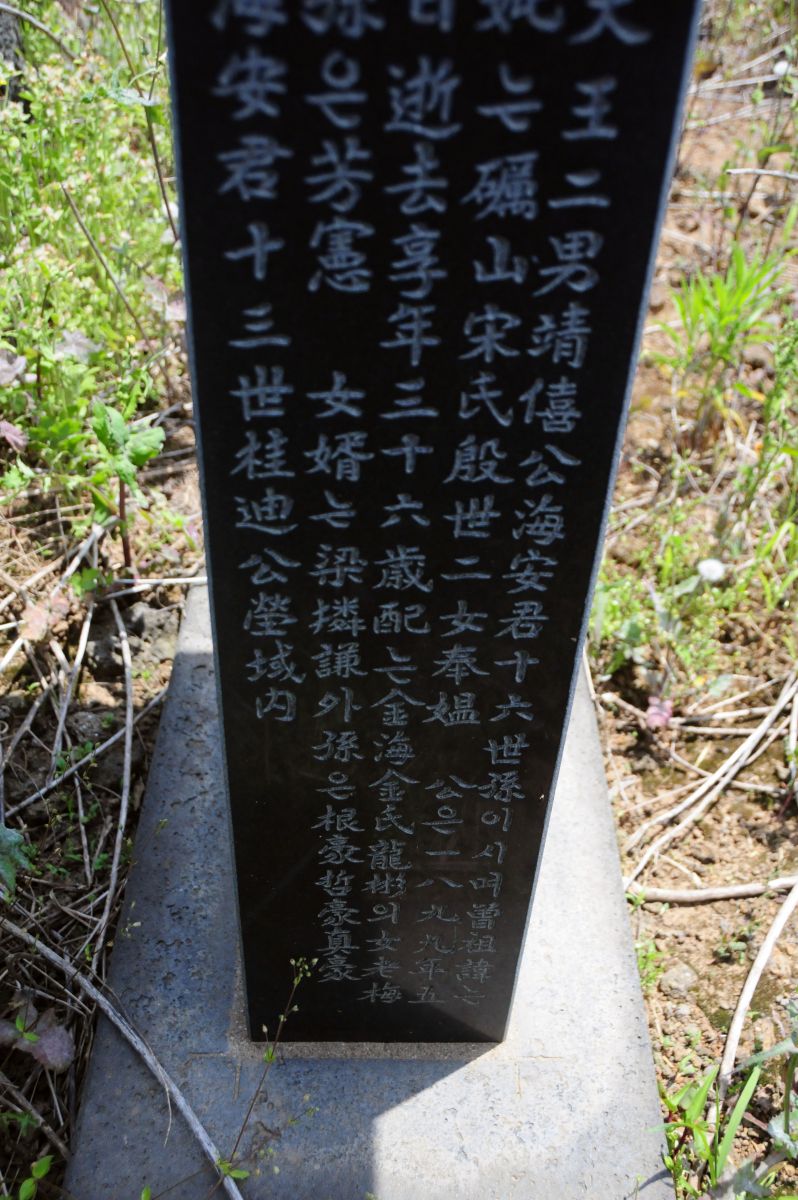 大王二男靖僖公海安君十六世孫이시며曽祖諱는
妣는礪山宋氏殷世二女奉媼 公은一八九九年五
日逝去享年三十六歲配는金海金氏龍彬의女老梅
孫은芳憲 女婿는梁撛謙外孫은根豪哲豪真豪
海安君十三世桂迪公塋域内